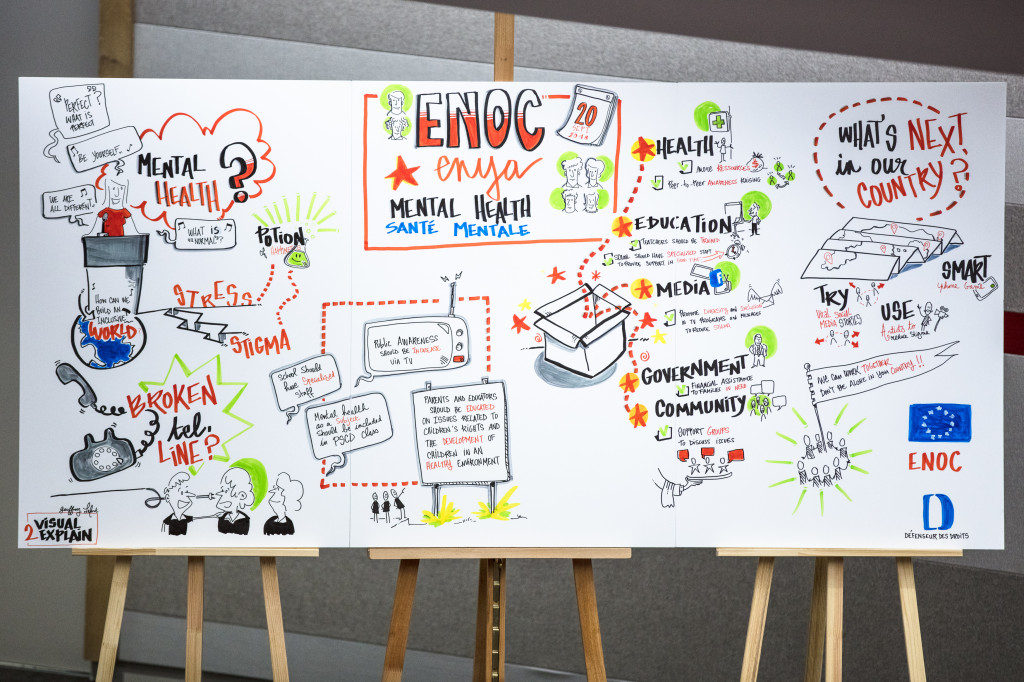 "PERFECT"?
WHAT IS
PERFECT
BE YOURSELF..
WE ARE
ALL DIFFERENT
MENTAL
HEALTH
?
WHAT IS
"NORMAL"??
HOW CAN WE
BUILD AN
INCLUSIVE
WORLD
POTION
STRESS
STIGMA
BROKEN
tel.
LINE?
2 VISUAL
EXPLAIN
ENOC
enya
MENTAL HEALTH
SANTÉ MENTALE
20
SEPT
PUBLIC AWARENESS
SHOULD BE INCREASE
VIA TV
School Should
have Specialized
Staff
Mental health
as a Subject
Should be included
in PSCD Class
PARENTS AND EDUCATORS
SHOULD BE EDUCATED
ON ISSUES RELATED TO
CHILDREN'S RIGHTS AND
THE DEVELOPMENT OF
CHILDREN IN AN
HEALTHY ENVIRONMENT
HEALTH
MORE RESSOURCES
PEER-TO-PEER AWARENESS RAISING
EDUCATION
TEACHERS SHOULD BE TRAINED
SCHOOL SHOULD HAVE SPECIALISED STAFF
TO PROVIDE SUPPORT IN
MEDIA
PROMOTE DIVERSITY AND INCLUSION
IN TV PROGRAMS AND MESSAGES
TO REDUCE STIGMA
GOVERNMENT
FINANCIAL ASSISTANCE
TO FAMILIES IN NEED
COMMUNITY
SUPPORT GROUPS
TO DISCUSS ISSUES
WHAT'S NEXT
in our
COUNTRY?
SMART
TRY
Viral Social
MEDIA STORIES
USE
Artists to
reduce Stigma
WE CAN WORK TOGETHER
DON'T BE ALONE IN YOUR COUNTRY!!
ENOC
DÉFENSEUR DES DROITS